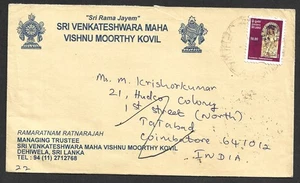 "Sri Rama Jayem"
SRI VENKATESHWARA MAHA
VISHNU MOORTHY KOVIL
Mr. M. Krishorkumar
21, Hudco Colony
1st Street (North)
Tatabad
Coimbatore 641012
INDIA
RAMARATNAM RATNARAJAH
MANAGING TRUSTEE
SRI VENKATESHWARA MAHA VISHNU MOORTHY KOVIL
DEHIWELA, SRI LANKA
TEL : 94 (11) 2712768
22